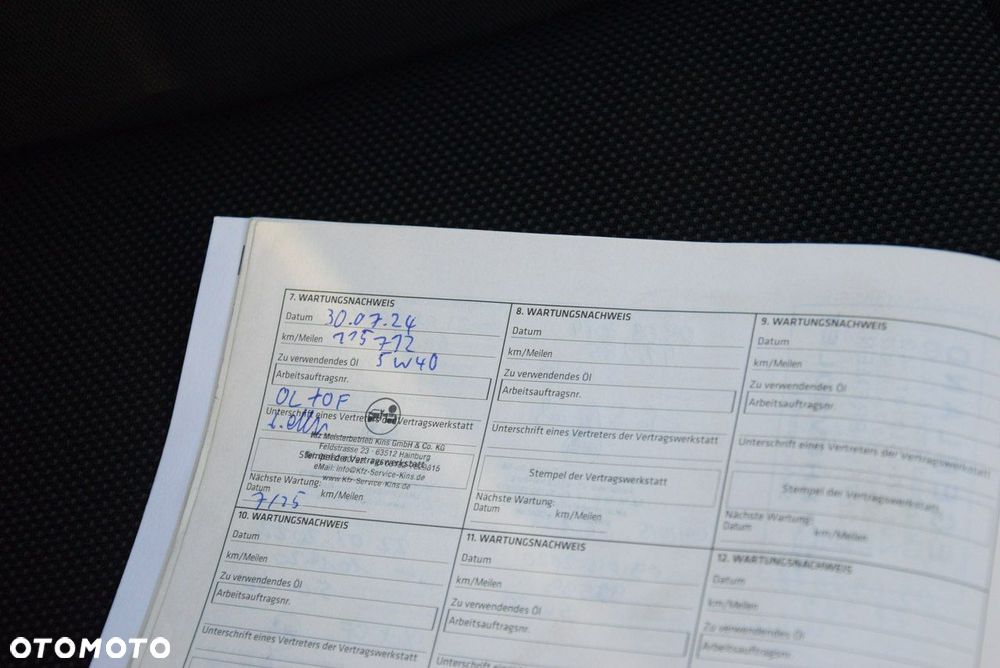 7. WARTUNGSNACHWEIS
Datum 30.07.24
km/Meilen 115712
Zu verwendendes Öl 5W40
Arbeitsauftragsnr.
ÖL + ÖF
Unterschrift eines Vertreters der Vertragswerkstatt
Kfz Meisterbetrieb Kins GmbH & Co. KG
Feldstrasse 23 - 63512 Hainburg
Stempel der Vertragswerkstatt
eMail: info@Kfz-Service-Kins.de
www.Kfz-Service-Kins.de
Nächste Wartung:
Datum km/Meilen
7/25
8. WARTUNGSNACHWEIS
Datum
km/Meilen
Zu verwendendes Öl
Arbeitsauftragsnr.
Unterschrift eines Vertreters der Vertragswerkstatt
Stempel der Vertragswerkstatt
Nächste Wartung:
Datum km/Meilen
9. WARTUNGSNACHWEIS
Datum
km/Meilen
Zu verwendendes Öl
Arbeitsauftragsnr.
Unterschrift eines Vertreters der Vertragswerkstatt
Stempel der Vertragswerkstatt
Nächste Wartung:
Datum km/Meilen
10. WARTUNGSNACHWEIS
Datum
km/Meilen
Zu verwendendes Öl
Arbeitsauftragsnr.
Unterschrift eines Vertreters der Vertragswerkstatt
11. WARTUNGSNACHWEIS
Datum
km/Meilen
Zu verwendendes Öl
Arbeitsauftragsnr.
Unterschrift eines Vertreters der Vertragswerkstatt
12. WARTUNGSNACHWEIS
Datum
km/Meilen
Zu verwendendes Öl
Arbeitsauftragsnr.
OTOMOTO